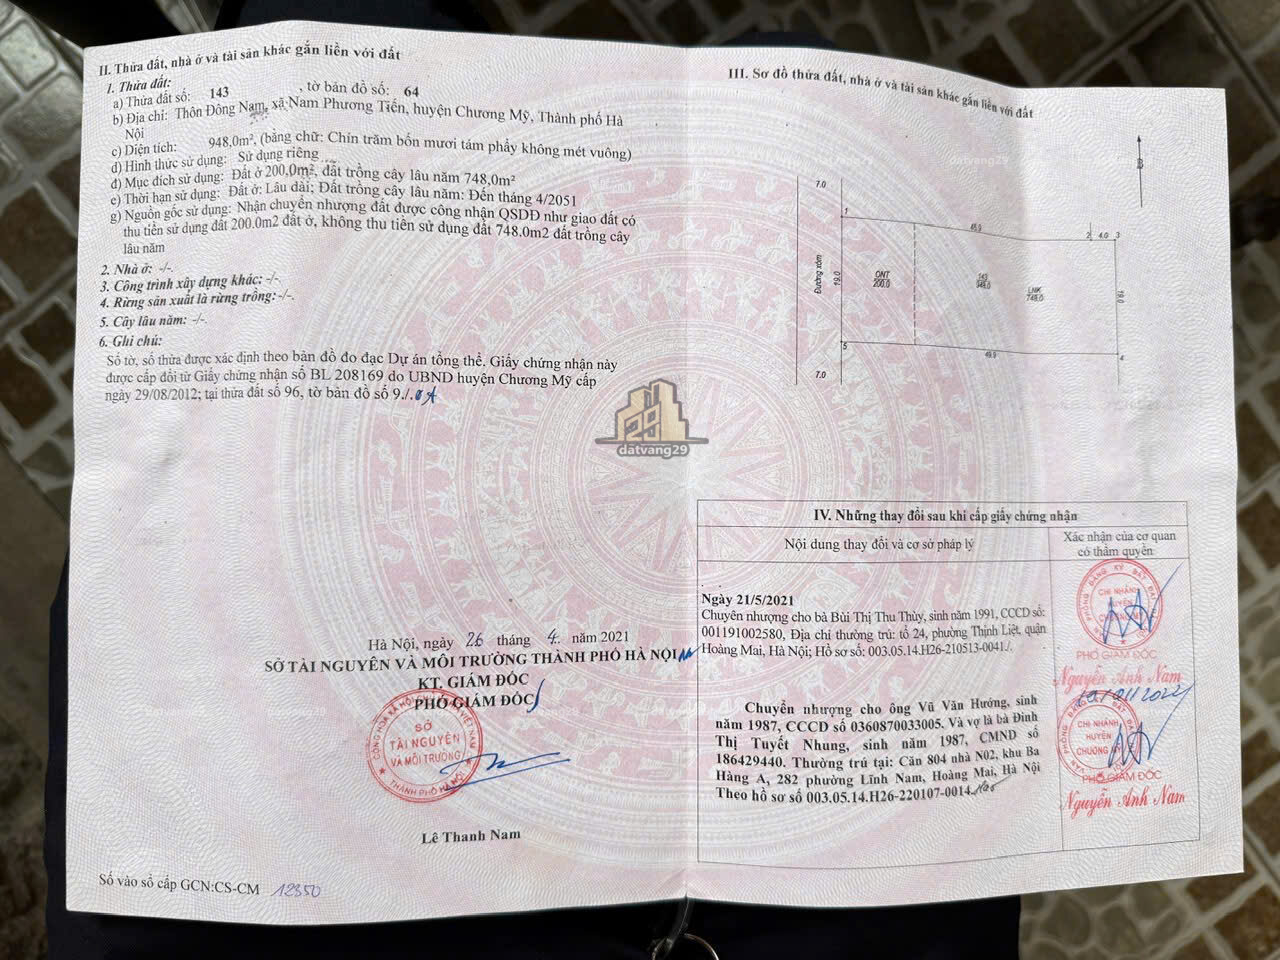 II. Thửa đất, nhà ở và tài sản khác gắn liền với đất
1. Thửa đất:
a) Thửa đất số: 143 , tờ bản đồ số: 64
b) Địa chỉ: Thôn Đông Nam, xã Nam Phương Tiến, huyện Chương Mỹ, Thành phố Hà
Nội
c) Diện tích: 948,0m², (bằng chữ: Chín trăm bốn mươi tám phẩy không mét vuông)
d) Hình thức sử dụng: Sử dụng riêng
đ) Mục đích sử dụng: Đất ở 200,0m², đất trồng cây lâu năm 748,0m²
e) Thời hạn sử dụng: Đất ở: Lâu dài; Đất trồng cây lâu năm: Đến tháng 4/2051
g) Nguồn gốc sử dụng: Nhận chuyển nhượng đất được công nhận QSDĐ như giao đất có
thu tiền sử dụng đất 200.0m2 đất ở, không thu tiền sử dụng đất 748.0m2 đất trồng cây
lâu năm
2. Nhà ở: -/-.
3. Công trình xây dựng khác: -/-.
4. Rừng sản xuất là rừng trồng: -/-.
5. Cây lâu năm: -/-.
6. Ghi chú:
Số tờ, số thửa được xác định theo bản đồ đo đạc Dự án tổng thể. Giấy chứng nhận này
được cấp đổi từ Giấy chứng nhận số BL 208169 do UBND huyện Chương Mỹ cấp
ngày 29/08/2012; tại thửa đất số 96, tờ bản đồ số 9./.
Hà Nội, ngày 26 tháng 4 năm 2021
SỞ TÀI NGUYÊN VÀ MÔI TRƯỜNG THÀNH PHỐ HÀ NỘI
KT. GIÁM ĐỐC
PHÓ GIÁM ĐỐC
CỘNG HÒA XÃ HỘI CHỦ NGHĨA VIỆT NAM
SỞ
TÀI NGUYÊN
VÀ MÔI TRƯỜNG
THÀNH PHỐ HÀ NỘI
Lê Thanh Nam
Số vào sổ cấp GCN:CS-CM 12350
29
datvang29
III. Sơ đồ thửa đất, nhà ở và tài sản khác gắn liền với đất
datvang29
B
7.0
1
45.9
2
4.0
3
Đường xóm
19.0
ONT
200.0
143
948.0
LNK
748.0
19.0
5
49.9
4
7.0
IV. Những thay đổi sau khi cấp giấy chứng nhận
Nội dung thay đổi và cơ sở pháp lý
Xác nhận của cơ quan
có thẩm quyền
Ngày 21/5/2021
Chuyển nhượng cho bà Bùi Thị Thu Thùy, sinh năm 1991, CCCD số:
001191002580, Địa chỉ thường trú: tổ 24, phường Thịnh Liệt, quận
Hoàng Mai, Hà Nội; Hồ sơ số: 003.05.14.H26-210513-0041./.
VĂN PHÒNG ĐĂNG KÝ ĐẤT ĐAI
CHI NHÁNH
HUYỆN
CHƯƠNG MỸ
PHÓ GIÁM ĐỐC
Nguyễn Anh Nam
Chuyển nhượng cho ông Vũ Văn Hướng, sinh
năm 1987, CCCD số 036087003005. Và vợ là bà Đinh
Thị Tuyết Nhung, sinh năm 1987, CMND số
186429440. Thường trú tại: Căn 804 nhà N02, khu Ba
Hàng A, 282 phường Lĩnh Nam, Hoàng Mai, Hà Nội
Theo hồ sơ số 003.05.14.H26-220107-0014.
CHI NHÁNH
HUYỆN
CHƯƠNG MỸ
PHÓ GIÁM ĐỐC
Nguyễn Anh Nam